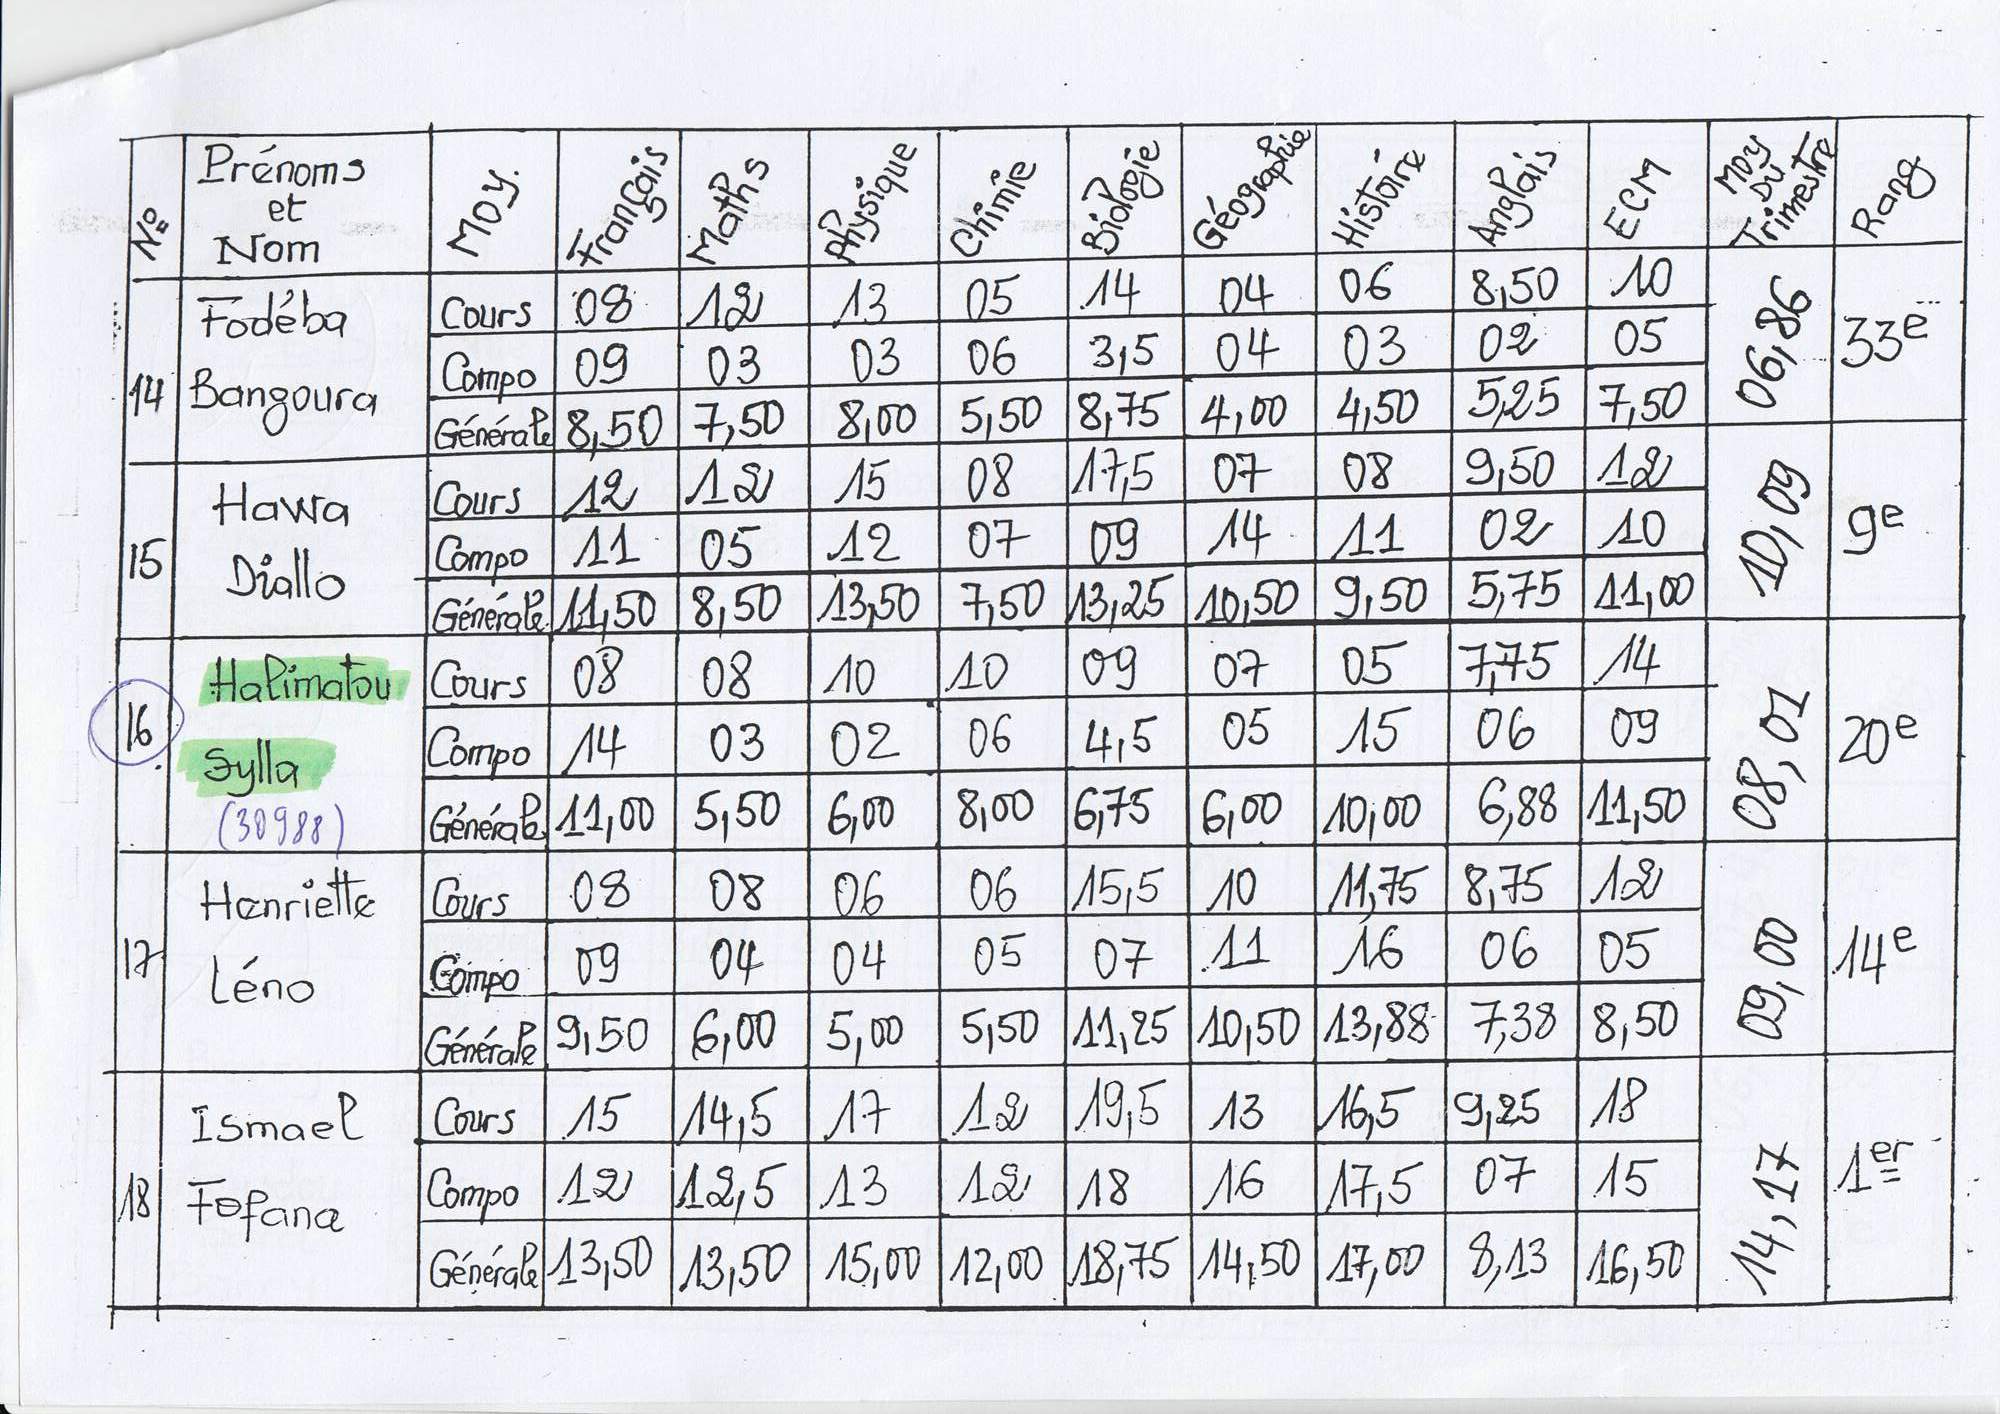 N° Prénoms et Nom MOY. Français Maths Physique Chimie Biologie Géographie Histoire Anglais ECM MOY DU Trimestre Rang
14 Fodéba Bangoura 06,86 33e
Cours 08 12 13 05 14 04 06 8,50 10
Compo 09 03 03 06 3,5 04 03 02 05
Générale 8,50 7,50 8,00 5,50 8,75 4,00 4,50 5,25 7,50
15 Hawa Diallo 10,09 9e
Cours 12 12 15 08 17,5 07 08 9,50 12
Compo 11 05 12 07 09 14 11 02 10
Générale 11,50 8,50 13,50 7,50 13,25 10,50 9,50 5,75 11,00
16 Halimatou Sylla (30988) 08,01 20e
Cours 08 08 10 10 09 07 05 7,75 14
Compo 14 03 02 06 4,5 05 15 06 09
Générale 11,00 5,50 6,00 8,00 6,75 6,00 10,00 6,88 11,50
17 Henriette Léno 09,00 14e
Cours 08 08 06 06 15,5 10 11,75 8,75 12
Compo 09 04 04 05 07 11 16 06 05
Générale 9,50 6,00 5,00 5,50 11,25 10,50 13,88 7,38 8,50
18 Ismael Fofana 14,17 1er
Cours 15 14,5 17 12 19,5 13 16,5 9,25 18
Compo 12 12,5 13 12 18 16 17,5 07 15
Générale 13,50 13,50 15,00 12,00 18,75 14,50 17,00 8,13 16,50